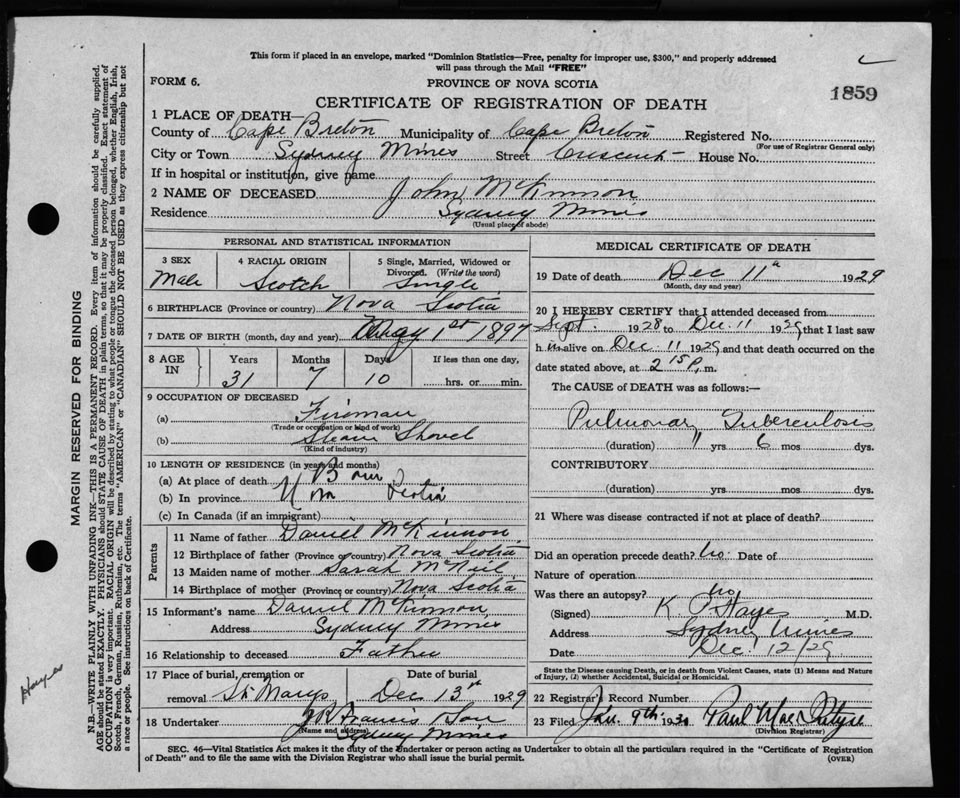 This form if placed in an envelope, marked "Dominion Statistics—Free, penalty for improper use, $300," and properly addressed
will pass through the Mail "FREE"
FORM 6.
PROVINCE OF NOVA SCOTIA
1859
CERTIFICATE OF REGISTRATION OF DEATH
1 PLACE OF DEATH—
County of Cape Breton Municipality of Cape Breton Registered No.
(For use of Registrar General only)
City or Town Sydney Mines Street Crescent House No.
If in hospital or institution, give name
2 NAME OF DECEASED John McKinnon
Residence Sydney Mines
(Usual place of abode)
PERSONAL AND STATISTICAL INFORMATION
3 SEX 4 RACIAL ORIGIN 5 Single, Married, Widowed or
Divorced. (Write the word)
Male Scotch Single
6 BIRTHPLACE (Province or country) Nova Scotia
7 DATE OF BIRTH (month, day and year) 1st 1897
8 AGE IN Years Months Days If less than one day,
31 7 10 hrs. or min.
9 OCCUPATION OF DECEASED
(a) Fireman
(Trade or occupation or kind of work)
(b) Steam Shovel
(Kind of industry)
10 LENGTH OF RESIDENCE (in years and months)
(a) At place of death Born
(b) In province Scotia
(c) In Canada (if an immigrant)
Parents
11 Name of father Daniel McKinnon
12 Birthplace of father (Province or country) Nova Scotia
13 Maiden name of mother Sarah McNeil
14 Birthplace of mother (Province or country) Nova Scotia
15 Informant's name Daniel McKinnon
Address Sydney Mines
16 Relationship to deceased Father
17 Place of burial, cremation or Date of burial
removal St. Marys Dec 13th 1929
18 Undertaker Francis & Son
(Name and address) Sydney Mines
MEDICAL CERTIFICATE OF DEATH
19 Date of death Dec 11th 1929
(Month, day and year)
20 I HEREBY CERTIFY that I attended deceased from
Sept. 1928 to Dec. 11 1929, that I last saw
h im alive on Dec 11 1929 and that death occurred on the
date stated above, at 2 15 P. m.
The CAUSE of DEATH was as follows:—
Pulmonary Tuberculosis
(duration) 11 yrs 6 mos dys.
CONTRIBUTORY
(duration) yrs mos dys.
21 Where was disease contracted if not at place of death?
Did an operation precede death? No Date of
Nature of operation
Was there an autopsy? No
(Signed) K. P. Hayes M.D.
Address Sydney Mines
Date Dec. 12/29
State the Disease causing Death, or in death from Violent Causes, state (1) Means and Nature
of Injury, (2) whether Accidental, Suicidal or Homicidal.
22 Registrar's Record Number
23 Filed Jan. 9th. 1930 Paul MacIntyre
(Division Registrar)
SEC. 46—Vital Statistics Act makes it the duty of the Undertaker or person acting as Undertaker to obtain all the particulars required in the "Certificate of Registration
of Death" and to file the same with the Division Registrar who shall issue the burial permit.
(OVER)
MARGIN RESERVED FOR BINDING
N.B.—WRITE PLAINLY WITH UNFADING INK—THIS IS A PERMANENT RECORD. Every item of information should be carefully supplied.
AGE should be stated EXACTLY. PHYSICIANS should STATE CAUSE OF DEATH in plain terms, so that it may be properly classified. Exact statement of
OCCUPATION is very important. RACIAL ORIGIN will be described by stating to what people or tongue the deceased person belonged, whether English, Irish,
Scotch, French, German, Russian, Ruthenian, etc. The terms "AMERICAN" or "CANADIAN" SHOULD NOT BE USED as they express citizenship but not
a race or people. See instructions on back of Certificate.
Hayes